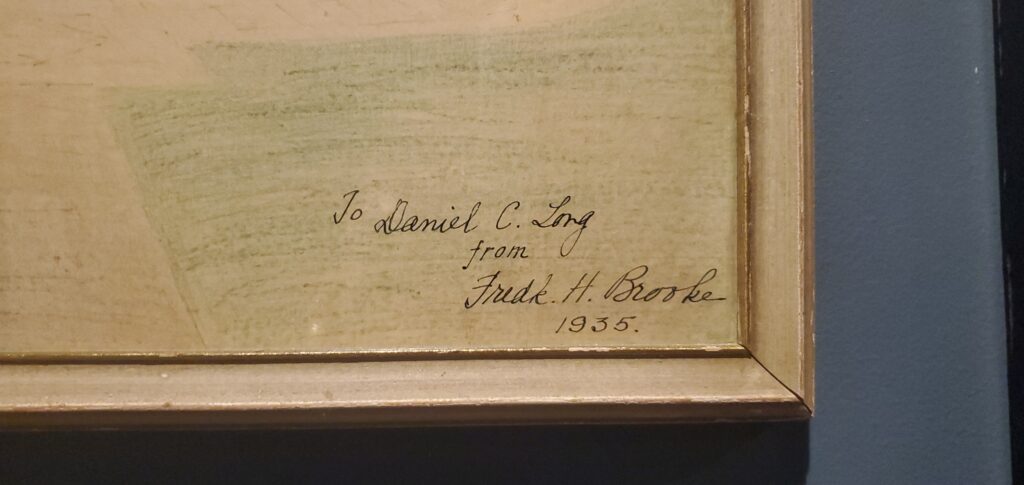 To Daniel C. Long
from
Fredk. H. Brooke
1935.